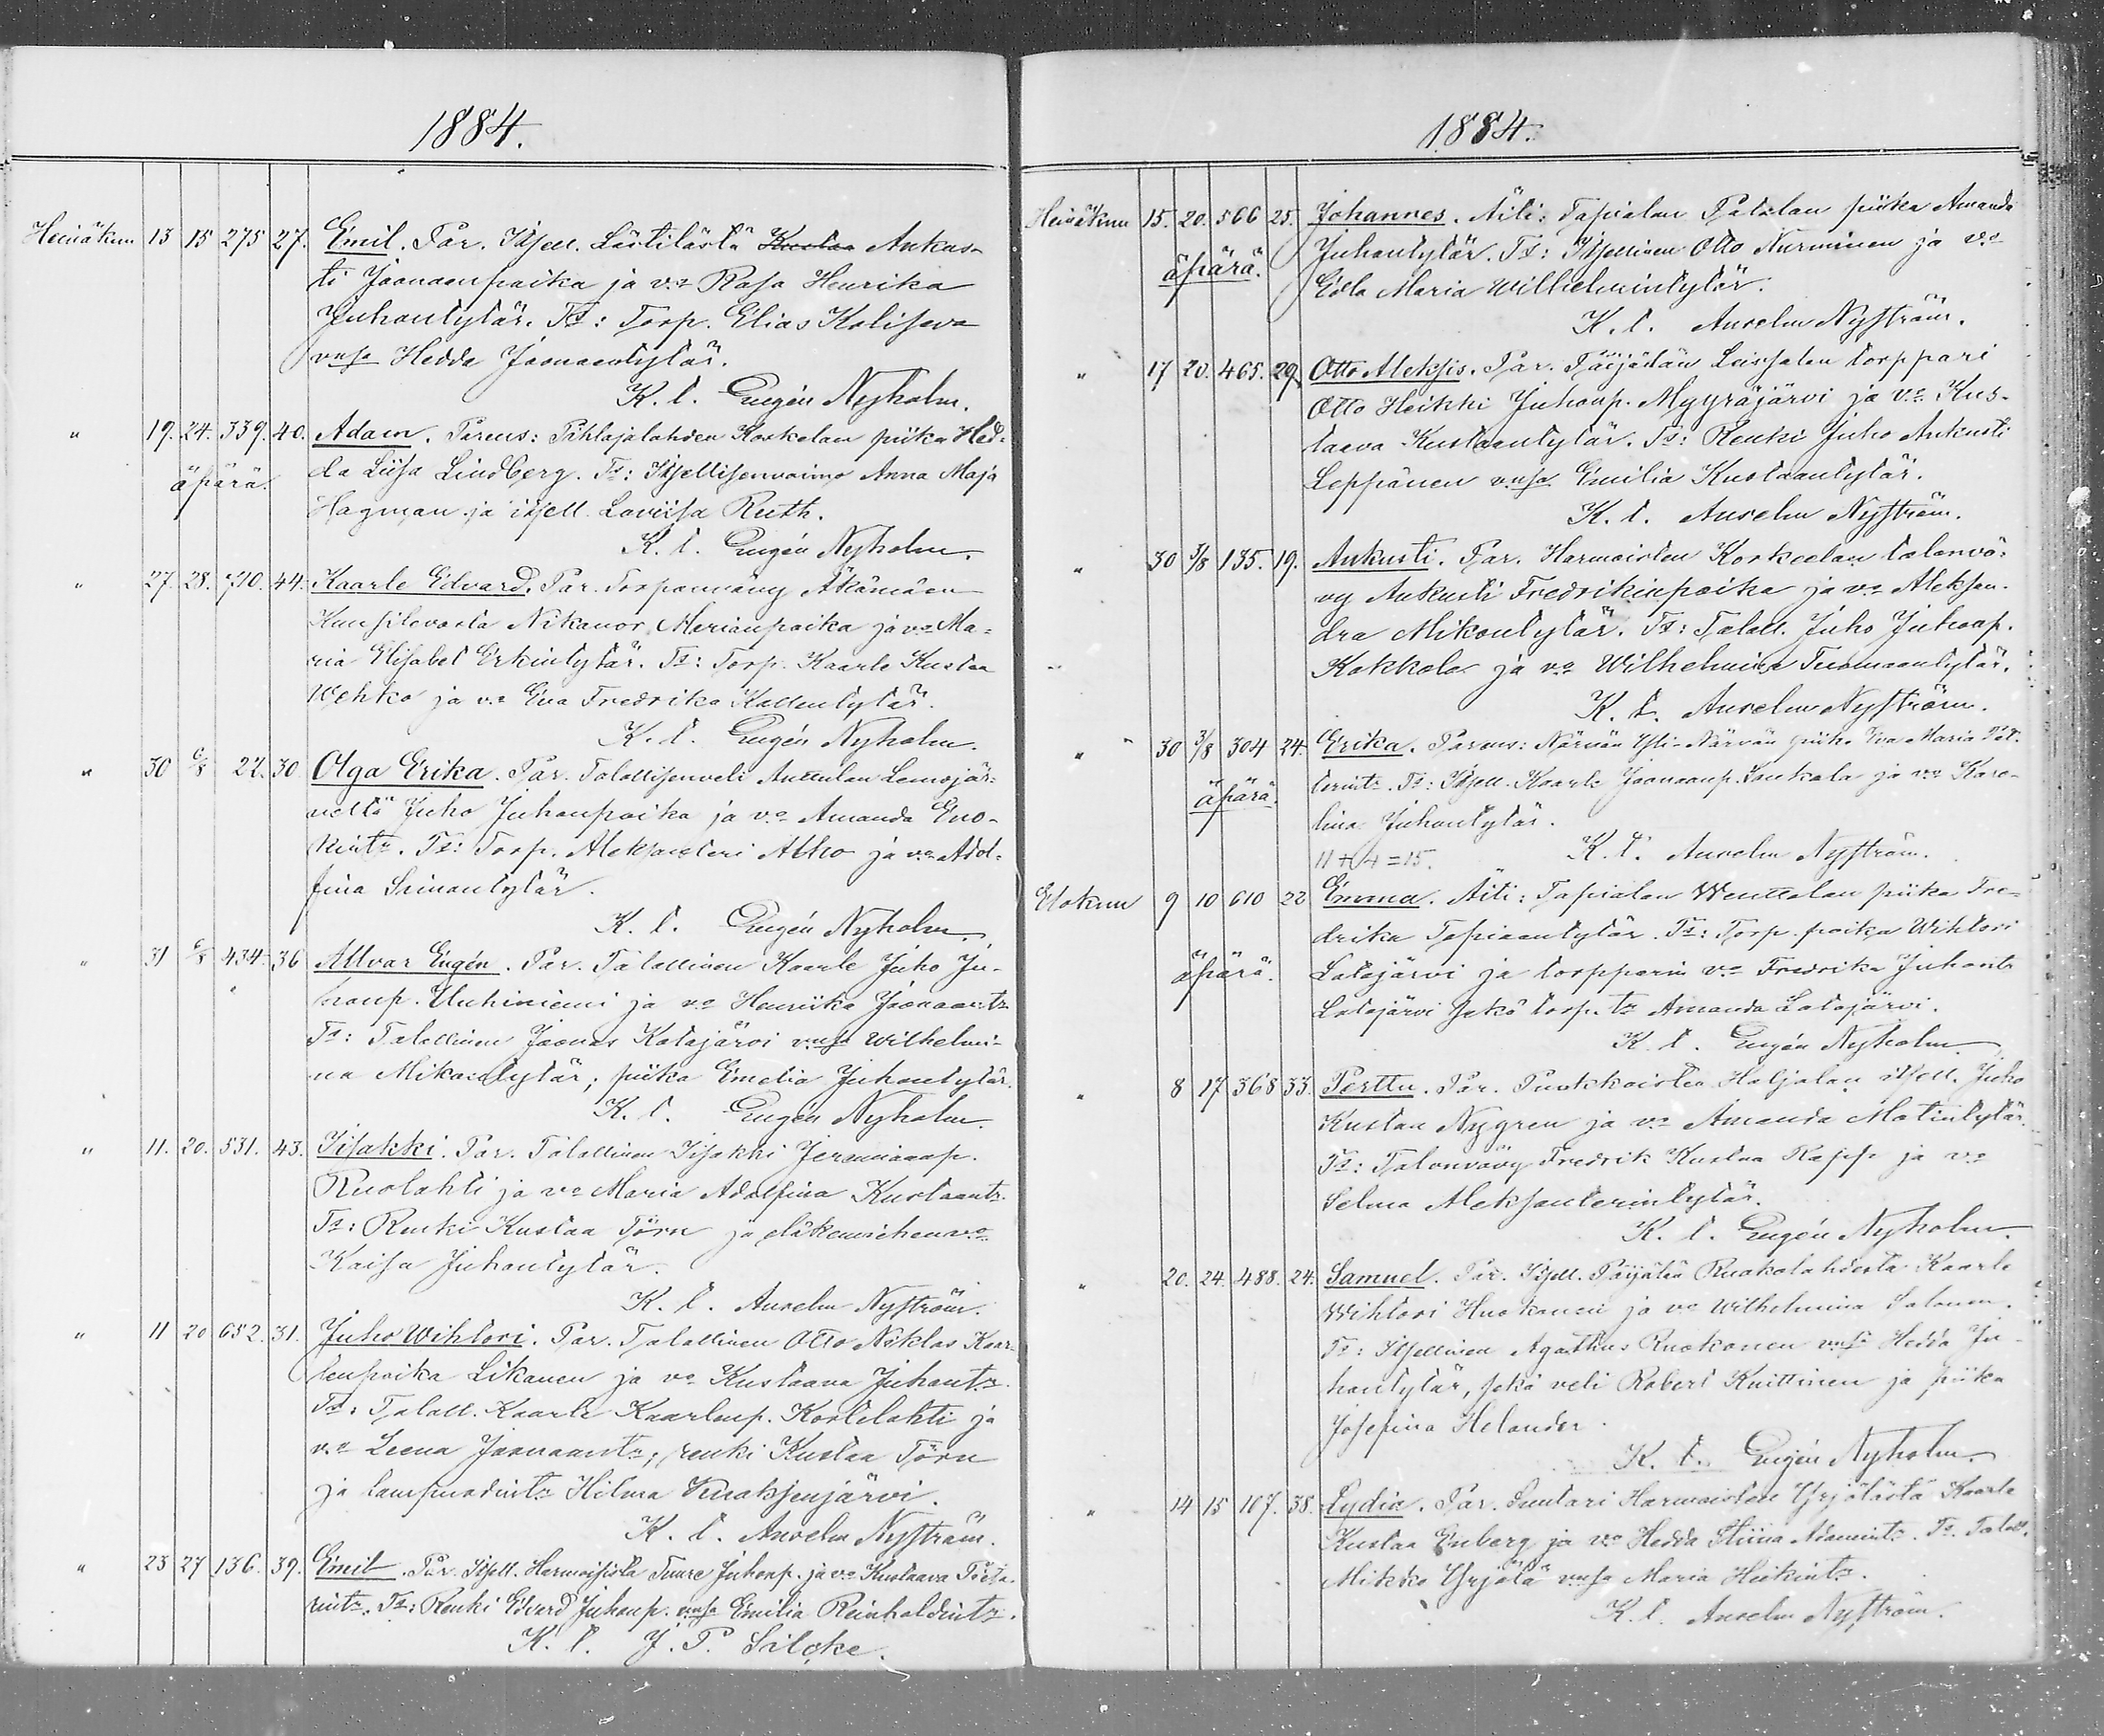 1884.
Heinäkuu 13 15 275 27. Emil. Par. Itsell. Lästilästä Kustaa Aukus-
ti Joonaanpoika ja v:o Rosa Henrika
Juhontytär. Td: Torp. Elias Kaliseva
vmsa Hedda Joonaantytär.
K. t. Eugén Nyholm.
" 19. 24. 339. 40. Adam. Parens: Pihlajalahden Korkolan piika Hed-
äpärä. da Liisa Lindberg. Td: Itsellisenvaimo Anna Maja
Hagman ja itsell. Loviisa Ruth.
K. t. Eugén Nyholm.
" 27. 28. 710. 44. Kaarle Edvard. Par. Torpanvävy Äkämäen
Nikanor Marianpoika ja v:o Ma-
ria Elisabet Erkintytär. Td: Torp. Kaarle Kustaa
Wehko ja v:o Eva Fredrika Kallentytär.
K. t. Eugén Nyholm.
" 30 6/8 22. 30 Olga Erika. Par. Talollisenveli Anttilan
Juho Juhonpoika ja v:o Amanda Eno-
kintr. Td: Torp. Aleksanteri Alho ja v:o Adol-
fina Simontytär.
K. t. Eugén Nyholm.
" 31 6/8 434. 36 Allvar Eugén. Par. Talollinen Kaarle Juho Ju-
honp. Uuhiniemi ja v:o Henriika Joonaantr.
Td: Talollinen Joonas Katajärvi vmsa Wilhelmi-
na Mikontytär; piika Emelia Juhontytär.
K. t. Eugén Nyholm.
" 11. 20. 531. 43. Iisakki. Par. Talollinen Iisakki Jeremiaanp.
Ruolahti ja v:o Maria Adolfina Kustaantr.
Td: Renki Kustaa Törn ja eläkemiehen v:o
Kaisa Juhontytär.
K. t. Anselm Nyström.
" 11 20 652. 31. Juho Wihtori. Par. Talollinen Otto Niklas Kaar-
lenpoika Likanen ja v:o Kustaava Juhontr.
Td: Taloll. Kaarle Kaarlenp. Kortelahti ja
v:o Leena Joonaantr; renki Kustaa Törn
ja lampuodintr Hilma
K. t. Anselm Nyström.
" 23 27 136. 39. Emil. Par. Itsell. Harmoisista Tuure Juhonp. ja v:o Kustaava Pieta-
rintr. Td: Renki Edvard Juhonp. vmsa Emilia Reinholdintr.
K. t. J. P. Silcke.
1884.
Heinäkuu 15. 20. 566 25. Johannes. Äiti: Tapialan Patalan piika Amanda
äpärä. Juhontytär. Td: Itsellinen Otto Nurminen ja v:o
Edla Maria Wilhelmintytär.
K. t. Anselm Nyström.
" 17 20. 465. 29 Otto Aleksis. Par. Päijälän torppari
Otto Heikki Juhonp. Myyräjärvi ja v:o Kus-
taava Kustaantytär. Td: Renki Juho Aukusti
Leppänen vmsa Emilia Kustaantytär.
K. t. Anselm Nyström.
" 30 3/8 135. 19. Aukusti. Par. Harmoisten Korkeelan talonvä-
vy Aukusti Fredrikinpoika ja v:o Aleksan-
dra Mikontytär. Td: Taloll. Juho Juhonp.
Kokkola ja v:o Wilhelmina Tuomaantytär.
K. t. Anselm Nyström.
" 30 3/8 304 24 Erika. Parens: Närvän Yli-Närvän piika Eva Maria Pet-
äpärä. terintr. Td: Itsell. Kaarle Joonaanp. Soukala ja v:o Karo-
lina Juhontytär.
11+4=15. K. t. Anselm Nyström.
Elokuu 9 10 610 22 Emma. Äiti: Tapialan Wenttolan piika Fre-
drika Topiaantytär. Td: Torp. poika Wihtori
äpärä. Latojärvi ja torpparin v:o Fredrika Juhontr
Latojärvi sekä torp. tr Amanda Latojärvi.
K. t. Eugén Nyholm.
" 8 17 368 33. Perttu. Par. Puukkoisten Haljalan itsell. Juho
Kustaa Nygren ja v:o Amanda Matintytär.
Td: Talonvävy Fredrik Kustaa Rapp ja v:o
Selma Aleksanterintytär.
K. t. Eugén Nyholm.
" 20. 24. 488. 24. Samuel. Par. Itsell. Päijälän Ruokolahdesta Kaarle
Wihtori Huokonen ja v:o Wilhelmina Salonen.
Td: Itsellinen Agathus Ruokonen vmsa Hedda Ju-
hontytär, sekä veli Robert Knittinen ja piika
Josefina Helander.
K. t. Eugén Nyholm.
" 14 15 107. 38. Lydia. Par. Suutari Harmoisten Yrjölästä Kaarle
Kustaa Enberg ja v:o Hedda Stiina Adamintr. Td. Taloll.
Mikko Yrjölä vmsa Maria Heikintr.
K. t. Anselm Nyström.